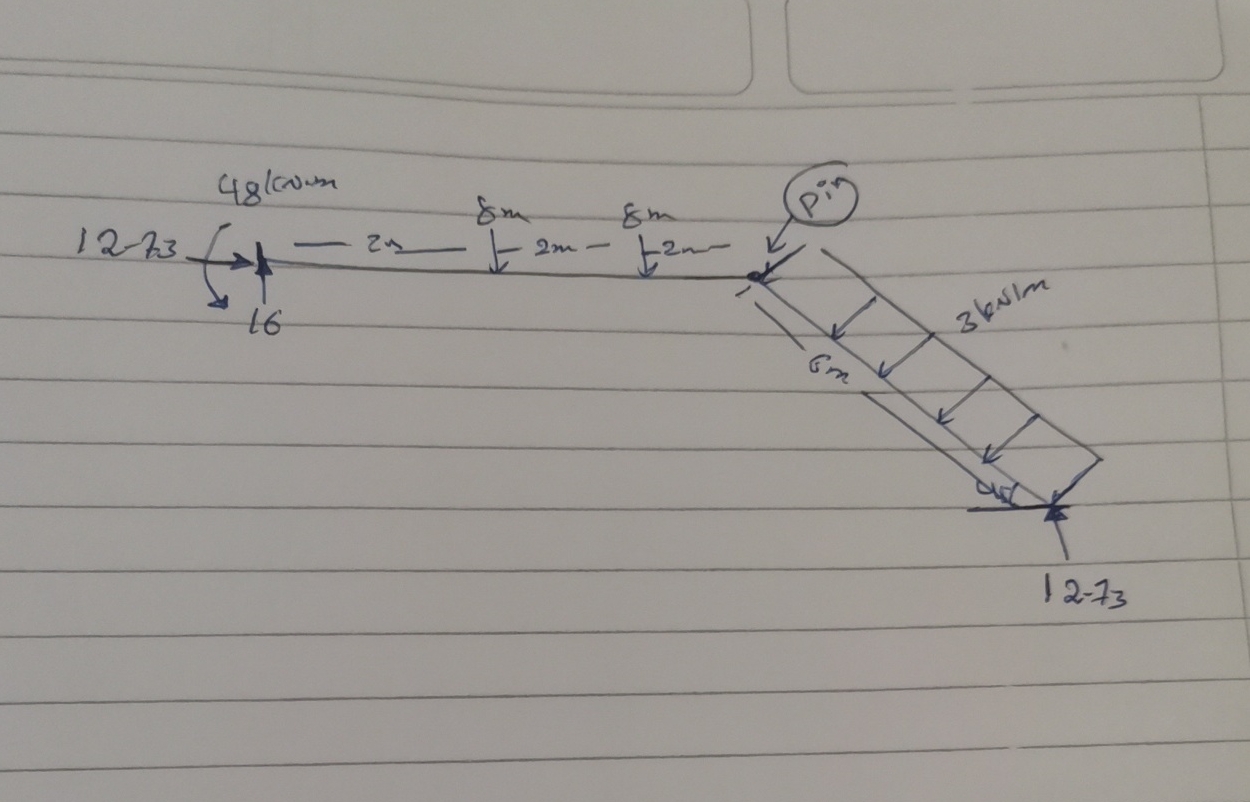 48kNm
Pin
8m
8m
12-73
2m
2m
2m
16
3kN/m
6m
45
12-73